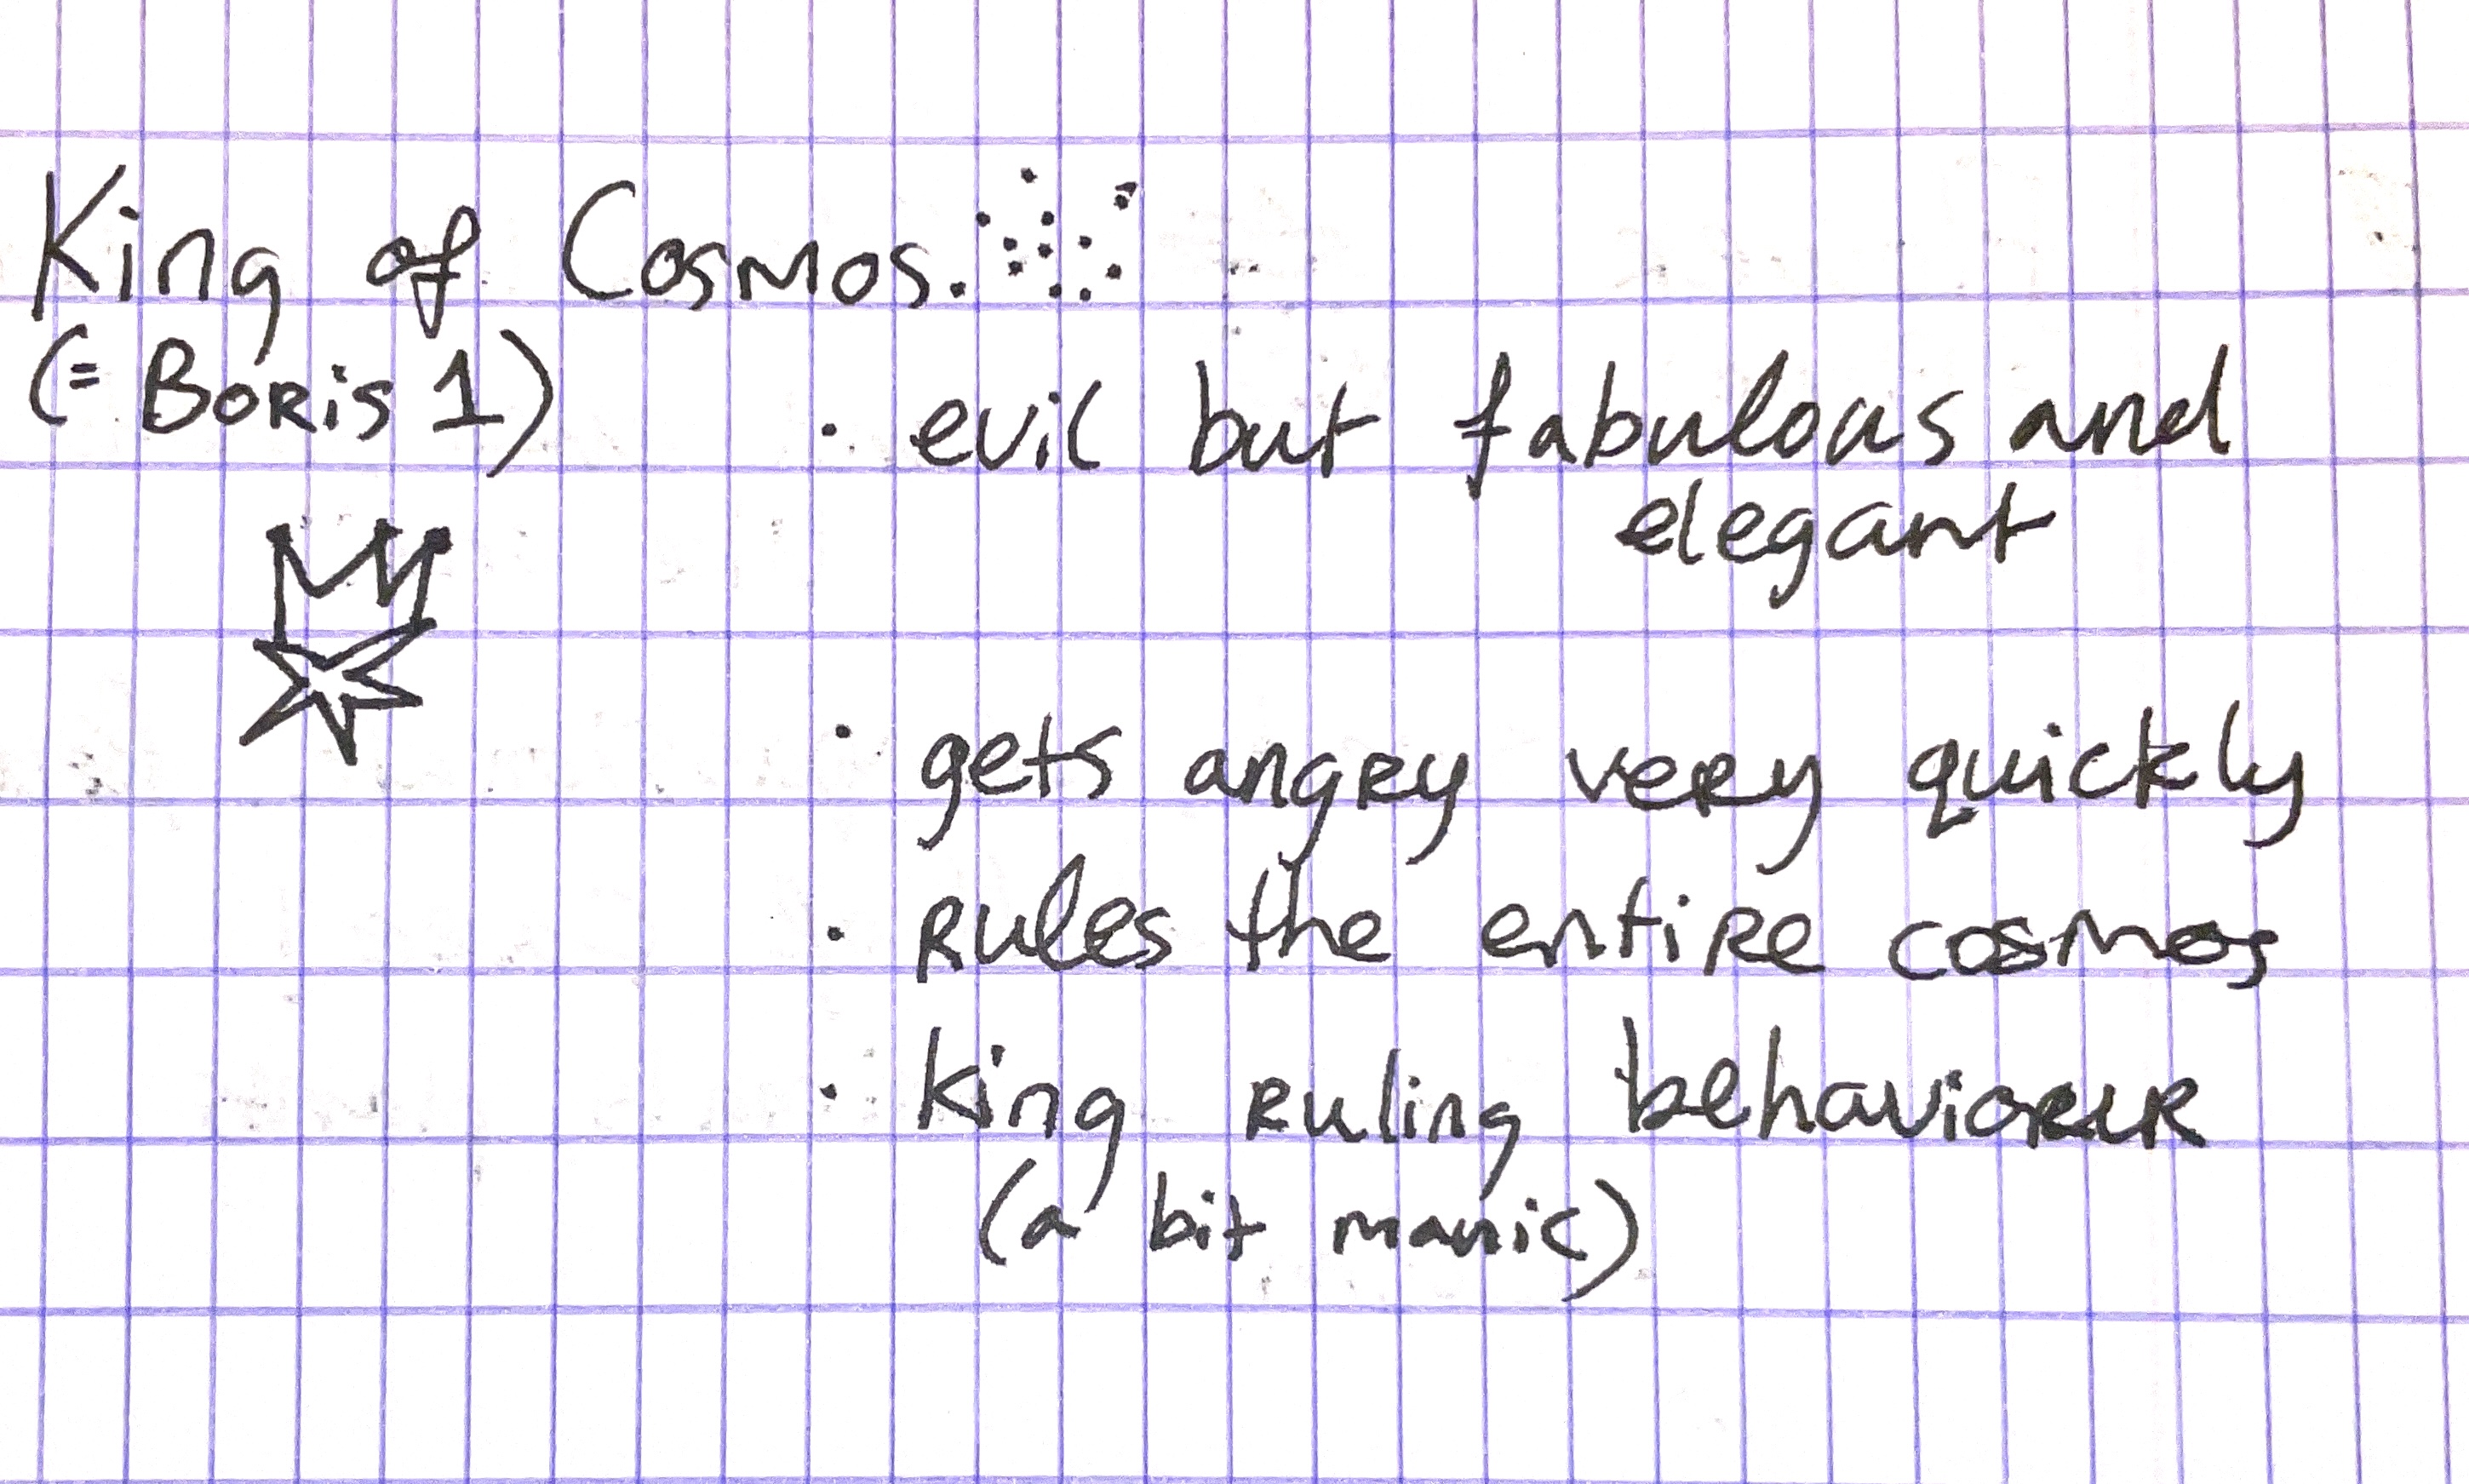 King of Cosmos.
(= Boris 1)
· evil but fabulous and
elegant
· gets angry very quickly
· rules the entire cosmos
· king ruling behaviour
(a bit manic)